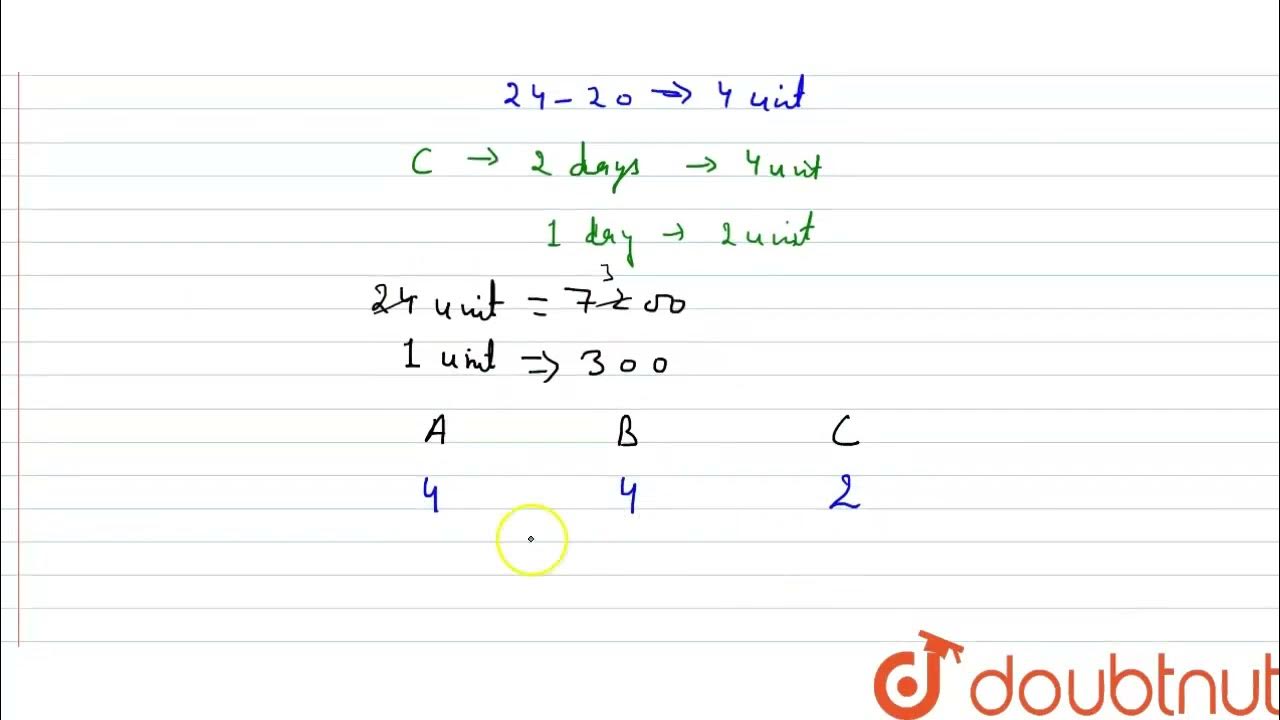 24-20 → 4 unit
C → 2 days → 4 unit
1 day → 2 unit
3
24 unit = 7200
1 unit ⇒ 300
A B C
4 4 2
doubtnut